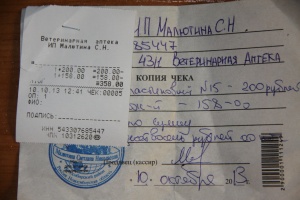 Ветеринарная аптека
ИП Малютина С.Н.
1×200.00 =200.00
1×158.00 =158.00
=358.00
10.10.13 12:41 ЧЕК:00005
ОП: 1
ФИО:
ПОДПИСЬ:
ИНН 543307685447
ИП МАЛЮТИНА С.Н.
85447
43Н ВЕТЕРИНАРНАЯ АПТЕКА
КОПИЯ ЧЕКА
N15 - 200 рублей
- 158-00
сумму
рублей 00
(кассир)
10 октября 2013